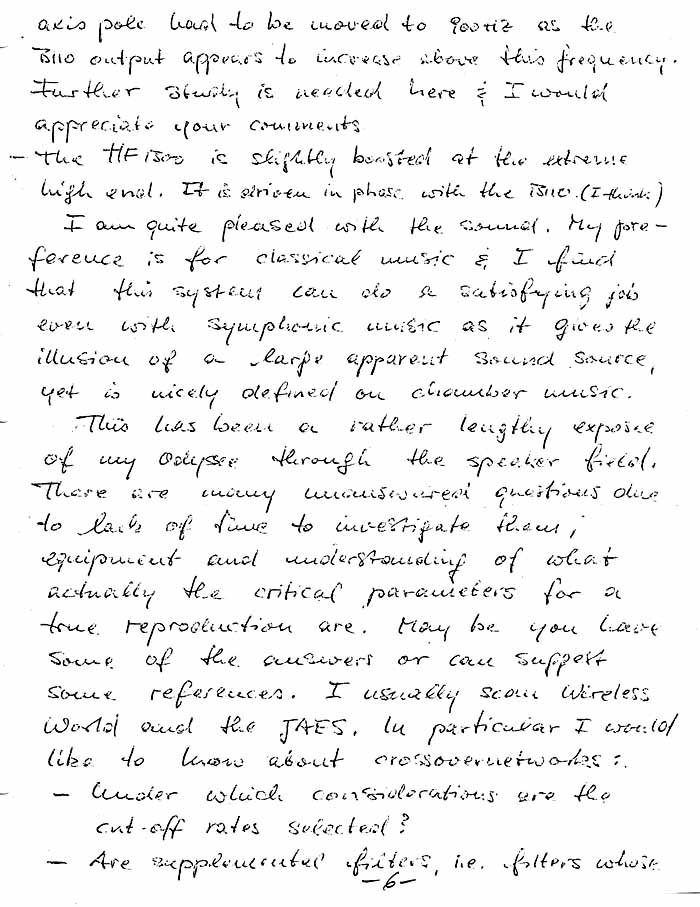 axis pole had to be moved to 900Hz as the
B110 output appears to increase above this frequency.
Further study is needed here & I would
appreciate your comments
- The HF1300 is slightly boosted at the extreme
high end. It is driven in phase with the B110. (I think)
I am quite pleased with the sound. My pre-
ference is for classical music & I find
that this system can do a satisfying job
even with symphonic music as it gives the
illusion of a large apparent sound source,
yet is nicely defined on chamber music.
This has been a rather lengthy expose
of my Odyssee through the speaker field.
There are many unanswered questions due
to lack of time to investigate them,
equipment and understanding of what
actually the critical parameters for a
true reproduction are. May be you have
some of the answers or can suggest
some references. I usually scan Wireless
World and the JAES. In particular I would
like to know about crossovernetworks:
- Under which considerations are the
cut-off rates selected?
- Are supplemental filters, i.e. filters whose
-6-